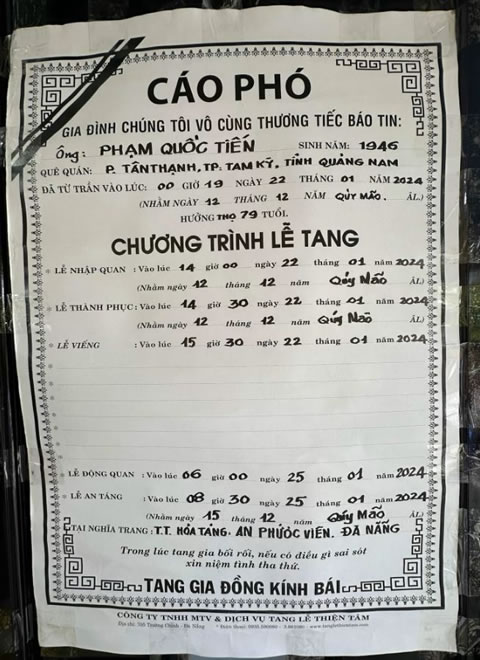 CÁO PHÓ
GIA ĐÌNH CHÚNG TÔI VÔ CÙNG THƯƠNG TIẾC BÁO TIN:
Ông: PHẠM QUỐC TIẾN SINH NĂM: 1946
QUÊ QUÁN: P. TÂN THẠNH, TP: TAM KỲ, TỈNH QUẢNG NAM
ĐÃ TỪ TRẦN VÀO LÚC: 00 GIỜ 19 NGÀY 22 THÁNG 01 NĂM 2024
(NHẰM NGÀY 12 THÁNG 12 NĂM QÚY MÃO. ÂL.)
HƯỞNG THỌ 79 TUỔI.
CHƯƠNG TRÌNH LỄ TANG
* LỄ NHẬP QUAN : Vào lúc 14 giờ 00 ngày 22 tháng 01 năm 2024
(Nhằm ngày 12 tháng 12 năm Qúy Mão ÂL)
* LỄ THÀNH PHỤC : Vào lúc 14 giờ 30 ngày 22 tháng 01 năm 2024
(Nhằm ngày 12 tháng 12 năm Qúy Mão ÂL)
* LỄ VIẾNG : Vào lúc 15 giờ 30 ngày 22 tháng 01 năm 2024
* LỄ ĐỘNG QUAN : Vào lúc 06 giờ 00 ngày 25 tháng 01 năm 2024
* LỄ AN TÁNG : Vào lúc 08 giờ 30 ngày 25 tháng 01 năm 2024
(Nhằm ngày 15 tháng 12 năm Qúy Mão ÂL)
TẠI NGHĨA TRANG : T.T. HỎA TÁNG. AN PHƯỚC VIÊN. ĐÀ NẴNG
Trong lúc tang gia bối rối, nếu có điều gì sai sót
xin niệm tình tha thứ.
TANG GIA ĐỒNG KÍNH BÁI
CÔNG TY TNHH MTV & DỊCH VỤ TANG LỄ THIỆN TÂM
Địa chỉ: Trường Chinh - Đà Nẵng * Điện thoại: